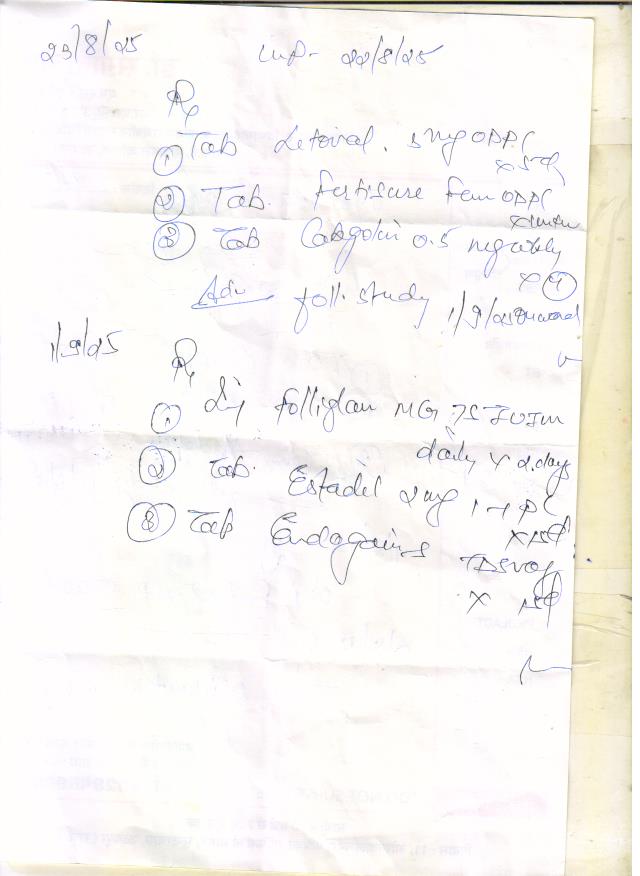 23/8/25 LMP- 22/8/25
Rx
① Tab Letoval. 5mg OD PC
x 5d
② Tab. Fertisure Fem OD PC
③ Tab Cabgolin 0.5 mg
x ④
Adv foll. study 1/9/25 onward
1/9/25
Rx
① Inj Folliglan MG 75 IU IM
daily x 2 days
② Tab. Estadel 2mg 1-1 PC
③ Tab Endogains
x